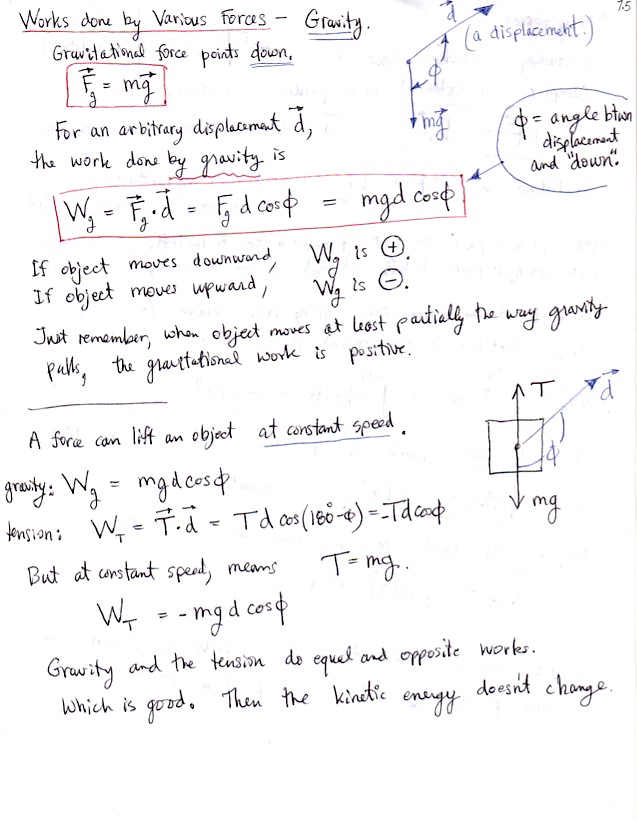 7.5
Works done by Various Forces – Gravity.
Gravitational force points down.
F⃗g = mg⃗
d⃗
(a displacement.)
ϕ
mg⃗
For an arbitrary displacement d⃗,
the work done by gravity is
ϕ = angle btwn
displacement
and "down".
Wg = F⃗g · d⃗ = Fg d cosϕ = mgd cosϕ
If object moves downward, Wg is ⊕.
If object moves upward, Wg is ⊖.
Just remember, when object moves at least partially the way gravity
pulls, the gravitational work is positive.
A force can lift an object at constant speed.
T
d⃗
ϕ
mg
gravity: Wg = mgd cosϕ
tension: WT = T⃗ · d⃗ = Td cos(180° - ϕ) = -Td cosϕ
But at constant speed, means T = mg.
WT = - mg d cosϕ
Gravity and the tension do equal and opposite works.
Which is good. Then the kinetic energy doesn't change.